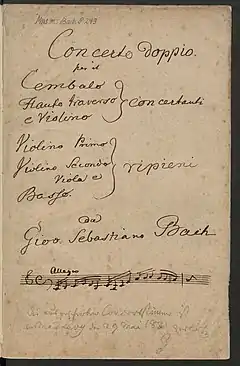 Mus. ms. Bach P 243
Concerto doppio.
per il
Cembalo
Flauto traverso
e Violino
concertanti
Violino Primo
Violino Secondo
Viola e
Basso.
ripieni
Da
Giov. Sebastiano Bach
Allegro